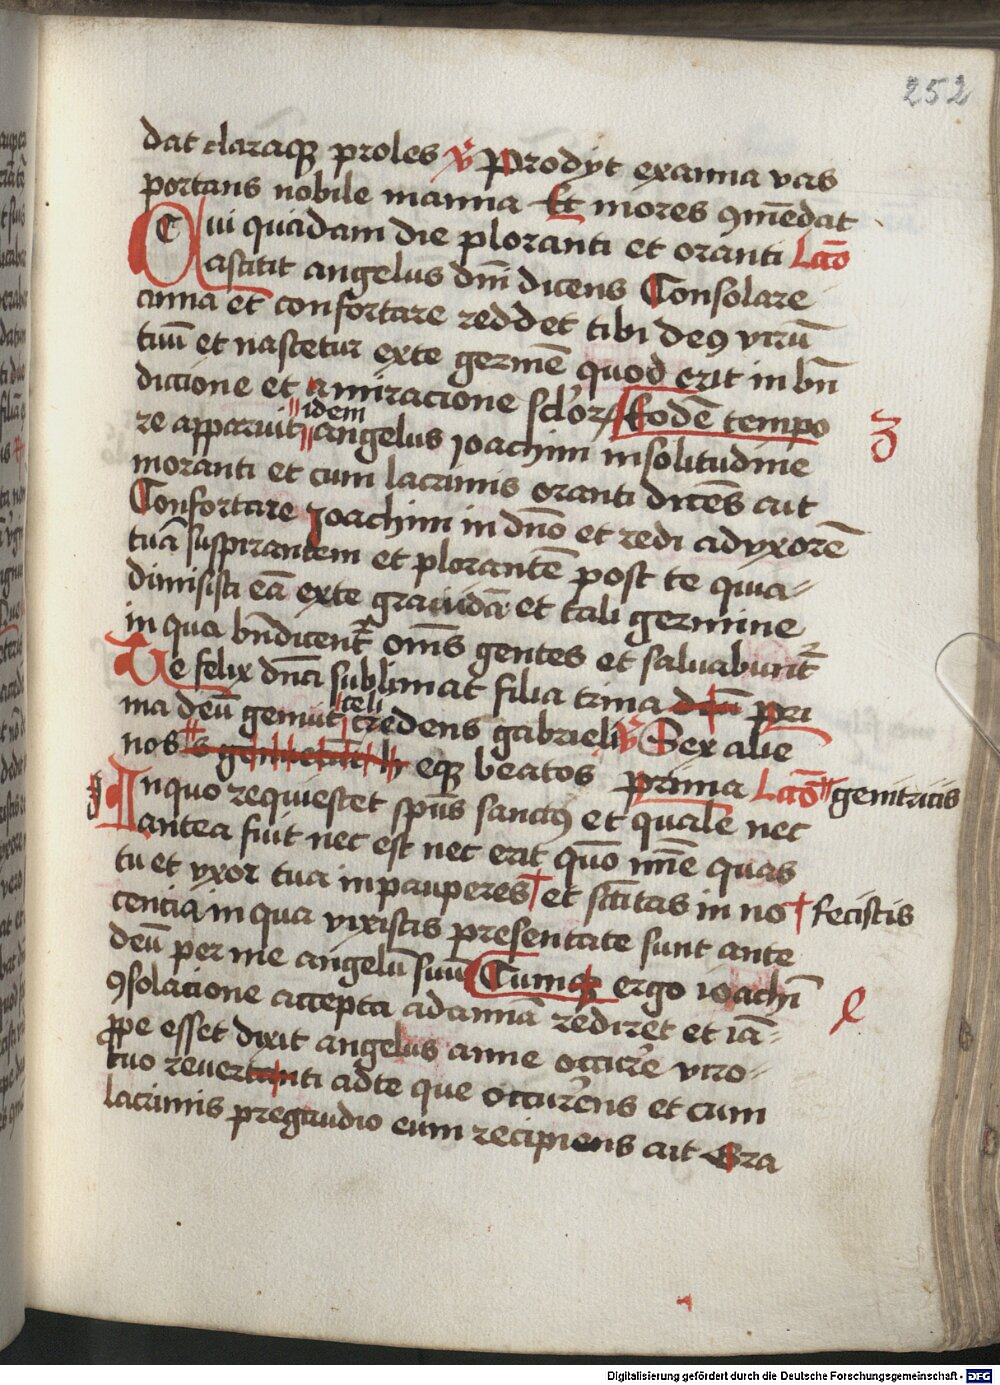 252
dat claraqꝫ proles ℣ Prodyt exanna vas
portans nobile manna Et mores ꝯmēdat
Cui quadam die ploranti et oranti Lc̄o
astitit angelus dn̄i dicens Consolare
anna et confortare reddet tibi deꝰ virū
tuū et nascetur exte germē quod erit in bn̄
diccione et amiracione sclor̄ Eodē tempo
re apparuit idem angelus ioachim insolitudine
moranti et cum lacrimis oranti dicēs ait
Confortare Joachim in dn̄o et redi aduxorē
tuā suspirantem et plorantē post te quia
dimisisti eā exte grauidā et tali germine
in qua bn̄dicent̄ om̄s gentes et saluabunt̄
Ue felix dn̄a sublimat filia trina pri
ma deū genuit celi credens gabrieli ℣ Sex alie
nos eqꝫ beatos prima Lc̄o genitricis
Inquo requiescet spūs sanctꝰ et quale nec
antea fuit nec est nec erit quō nn̄e quas
tu et vxor tua inpauperes † et sc̄titas in no † fecistis
cencia in qua vixistis presentate sunt ante
deū per me angelū suū Cumqꝫ ergo ioachī
ꝯsolacione accepta adannā rediret et iā
ꝓpe esset dixit angelus anne occure viro
tuo reuertenti adte que occurens et cum
lacrimis pregaudio eum recipiens ait Gra
Digitalisierung gefördert durch die Deutsche Forschungsgemeinschaft - DFG